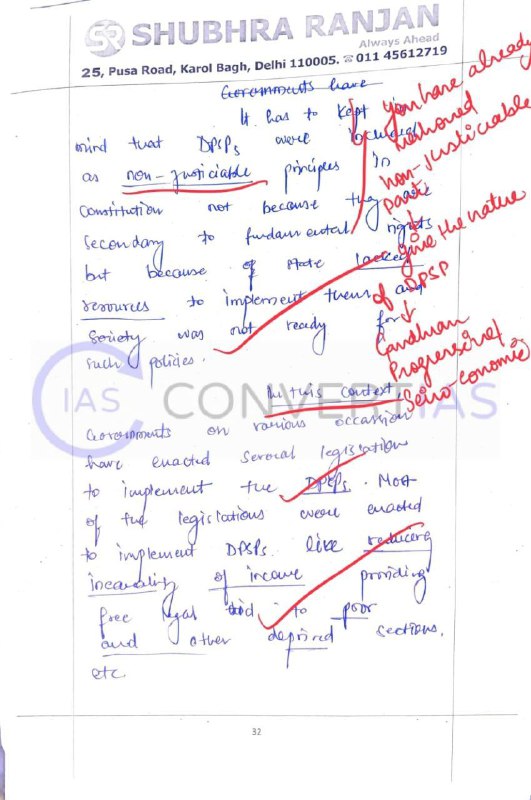 SR SHUBHRA RANJAN
Always Ahead
25, Pusa Road, Karol Bagh, Delhi 110005. ☎ 011 45612719
Governments have
It has to kept
mind that DPSPs were included
as non-justiciable principles in
Constitution not because they are
secondary to fundamental rights
but because of state lacked
resources to implement them and
society was not ready for
such policies.
In this context,
Governments on various occassion
have enacted several legislations
to implement the DPSPs. Most
of the legislations were enacted
to implement DPSPs like reducing
inequality of income providing
free legal aid to poor
and other deprived sections.
etc.
You have already
mentioned
non-justiciable
part
give the nature
of DPSP
Gandhian
Progressive
Socio-economic
IAS CONVERTIAS
32